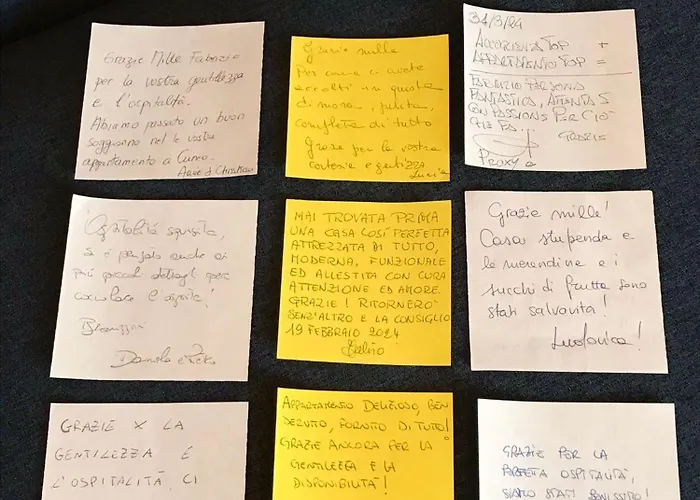 Grazie Mille Fabrizio
per la vostra gentilezza
e l'ospitalità.
Abbiamo passato un buon
soggiorno nel le vostre
appartamento a Cuneo.
Anne & Christian
Grazie mille
Per come ci avete
accolti in questa
dimora, pulita,
completa di tutto
Grazie per la vostra
cortesia e gentilezza
Lucia
31/3/24
ACCOGLIENZA TOP +
APPARTAMENTO TOP =
FABRIZIO PERSONA
FANTASTICA, ATTENTA E
CON PASSIONE PER CIÒ
CHE FA..
GRAZIE
Ospitalità squisita,
si è pensato anche ai
più piccoli dettagli per
coccolare l'ospite!
Danila e
MAI TROVATA PRIMA
UNA CASA COSÍ PERFETTA
ATTREZZATA DI TUTTO,
MODERNA, FUNZIONALE
ED ALLESTITA CON CURA
ATTENZIONE ED AMORE.
GRAZIE! RITORNERÒ
SENZ'ALTRO E LA CONSIGLIO
19 FEBBRAIO 2024
Grazie mille!
Casa stupenda e
le merendine e i
succhi di frutta sono
stati salvavita!
Ludovica!
GRAZIE X LA
GENTILEZZA E
L'OSPITALITÀ, CI
APPARTAMENTO DELIZIOSO, BEN
TENUTO, FORNITO DI TUTTO!
GRAZIE ANCORA PER LA
GENTILEZZA E LA
DISPONIBILITÀ!
GRAZIE PER LA
PERFETTA OSPITALITÀ,
SIAMO STATI BENISSIMO!